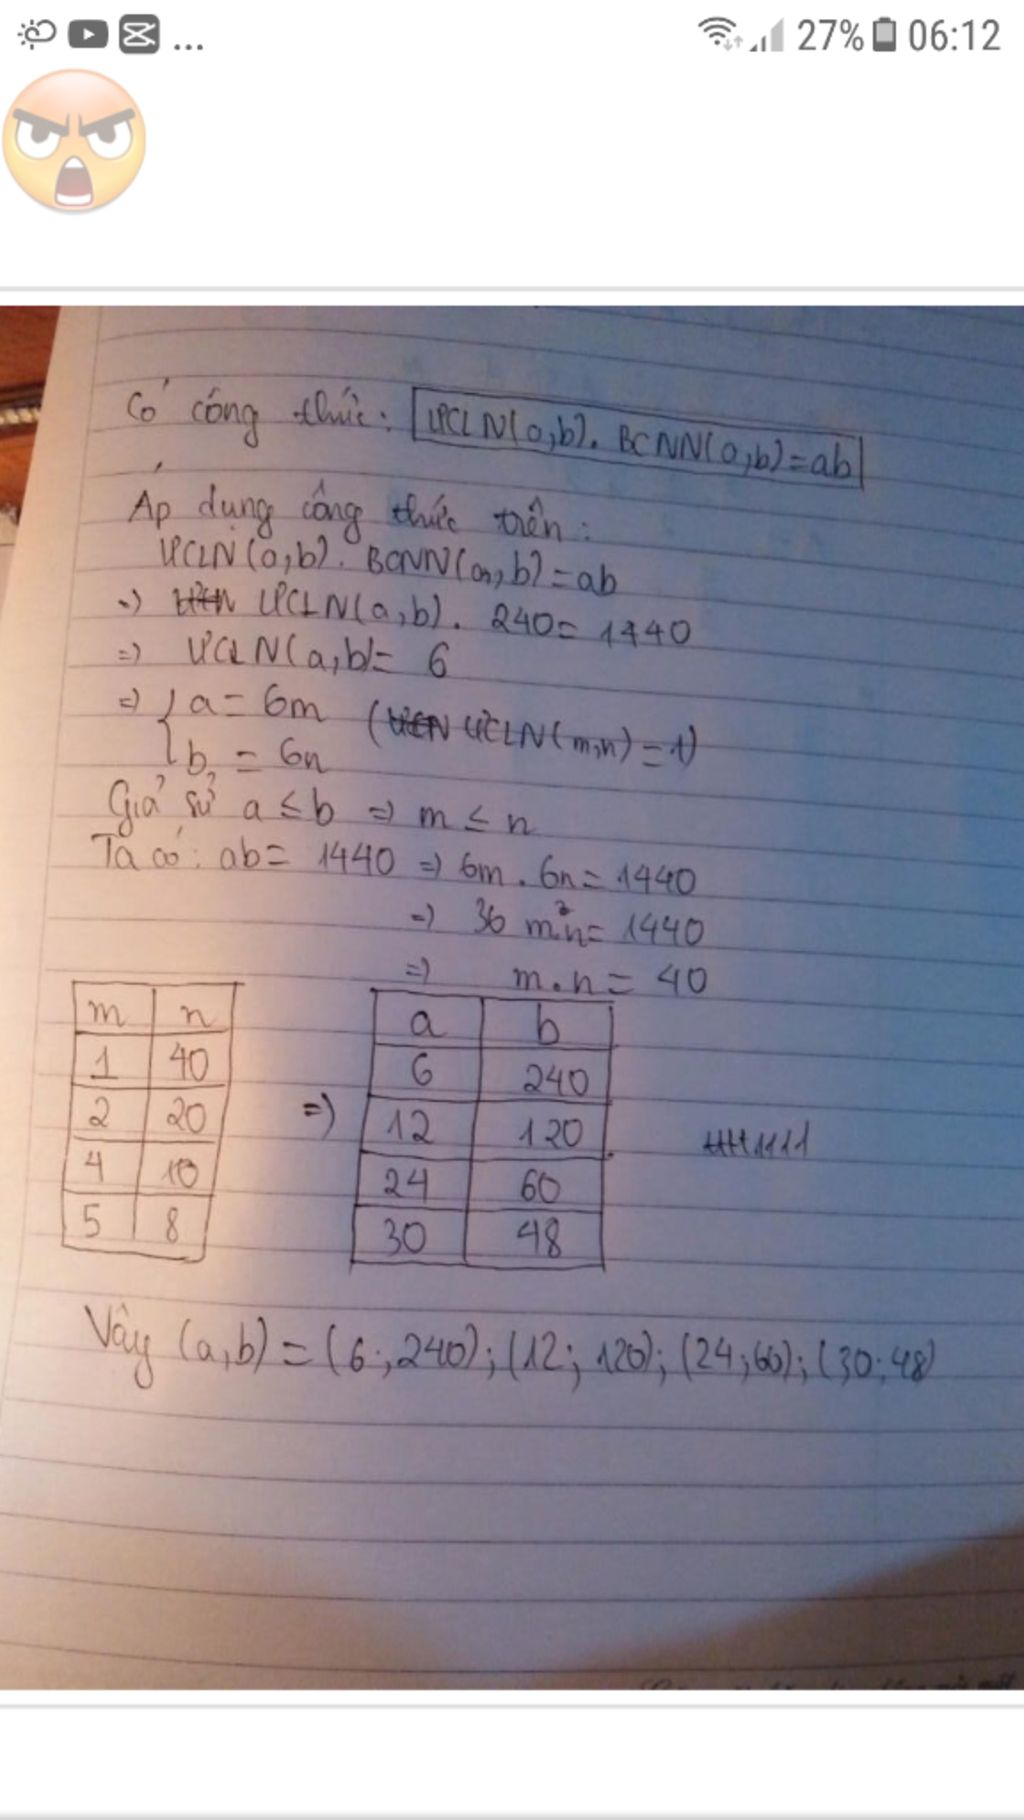 ... 27% 06:12
Có công thức: ƯCLN(a,b). BCNN(a,b)=ab
Áp dụng công thức trên:
ƯCLN(a,b). BCNN(a,b)=ab
=) ƯCLN(a,b). 240= 1440
=) ƯCLN(a,b)= 6
=) { a= 6m (ƯCLN(m,n)=1)
b = 6n
Giả sử a ≤ b =) m ≤ n
Ta có: ab= 1440 =) 6m . 6n= 1440
=) 36 m.n= 1440
=) m.n = 40
m n
1 40
2 20
4 10
5 8
=)
a b
6 240
12 120
24 60
30 48
Vậy (a,b) = (6;240);(12; 120);(24;60);(30;48)